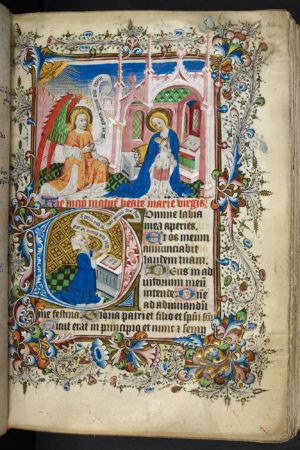 Hic incip matut' beate marie virgis
Domine labia
mea aperies.
Et os meum
annunciabit
laudem tuam.
Deus in ad
iutorium meū
intende. Dn̄e
ad adiuuandū
me festina. Gloria patri et filio et spūi sc̄o
Sicut erat in principio et nunc z semp